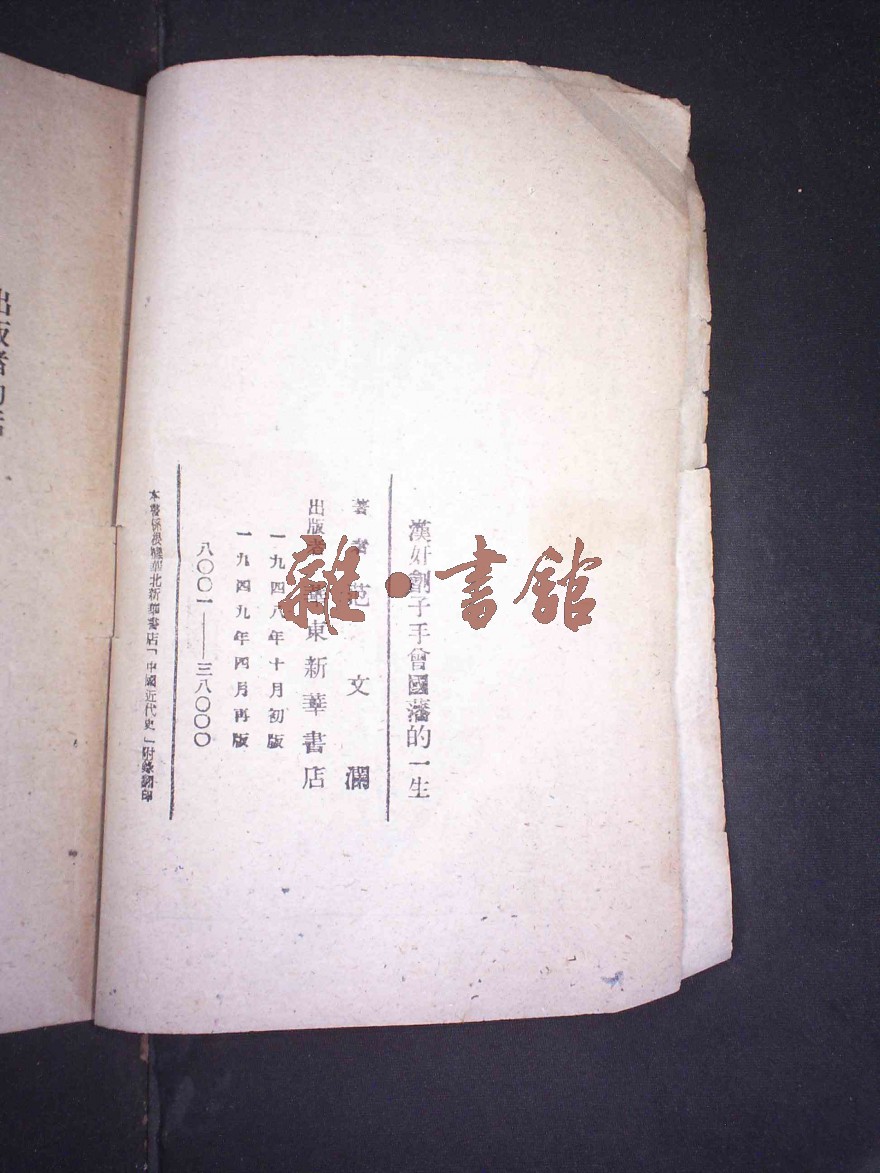 漢奸劊子手曾國藩的一生
著者 范文瀾
出版者 東新華書店
一九四八年十月初版
一九四九年四月再版
八〇〇一——三八〇〇〇
本書係根據華北新華書店「中國近代史」附錄翻印
出版者的話
雜·書館